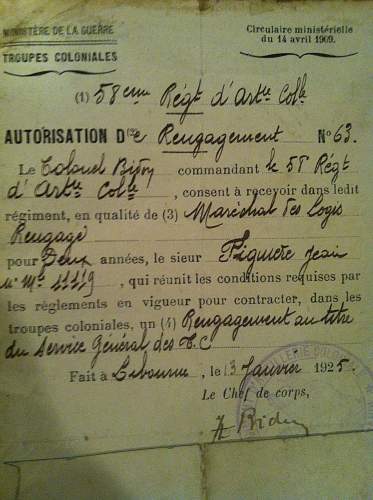 MINISTÈRE DE LA GUERRE
TROUPES COLONIALES
Circulaire ministérielle
du 14 avril 1909.
(1) 58eme Régt d'Artie Colle
AUTORISATION D(2)e Rengagement N° 63.
Le Colonel commandant le 58 Régt
d'Artie Colle, consent à recevoir dans ledit
régiment, en qualité de (3) Maréchal des Logis
Rengagé
pour Deux années, le sieur Jean
n° Mle 11119, qui réunit les conditions requises par
les règlements en vigueur pour contracter, dans les
troupes coloniales, un (4) Rengagement au titre
du Service Général des T.C
Fait à Libourne, le 13 Janvier 1925.
Le Chef de corps,